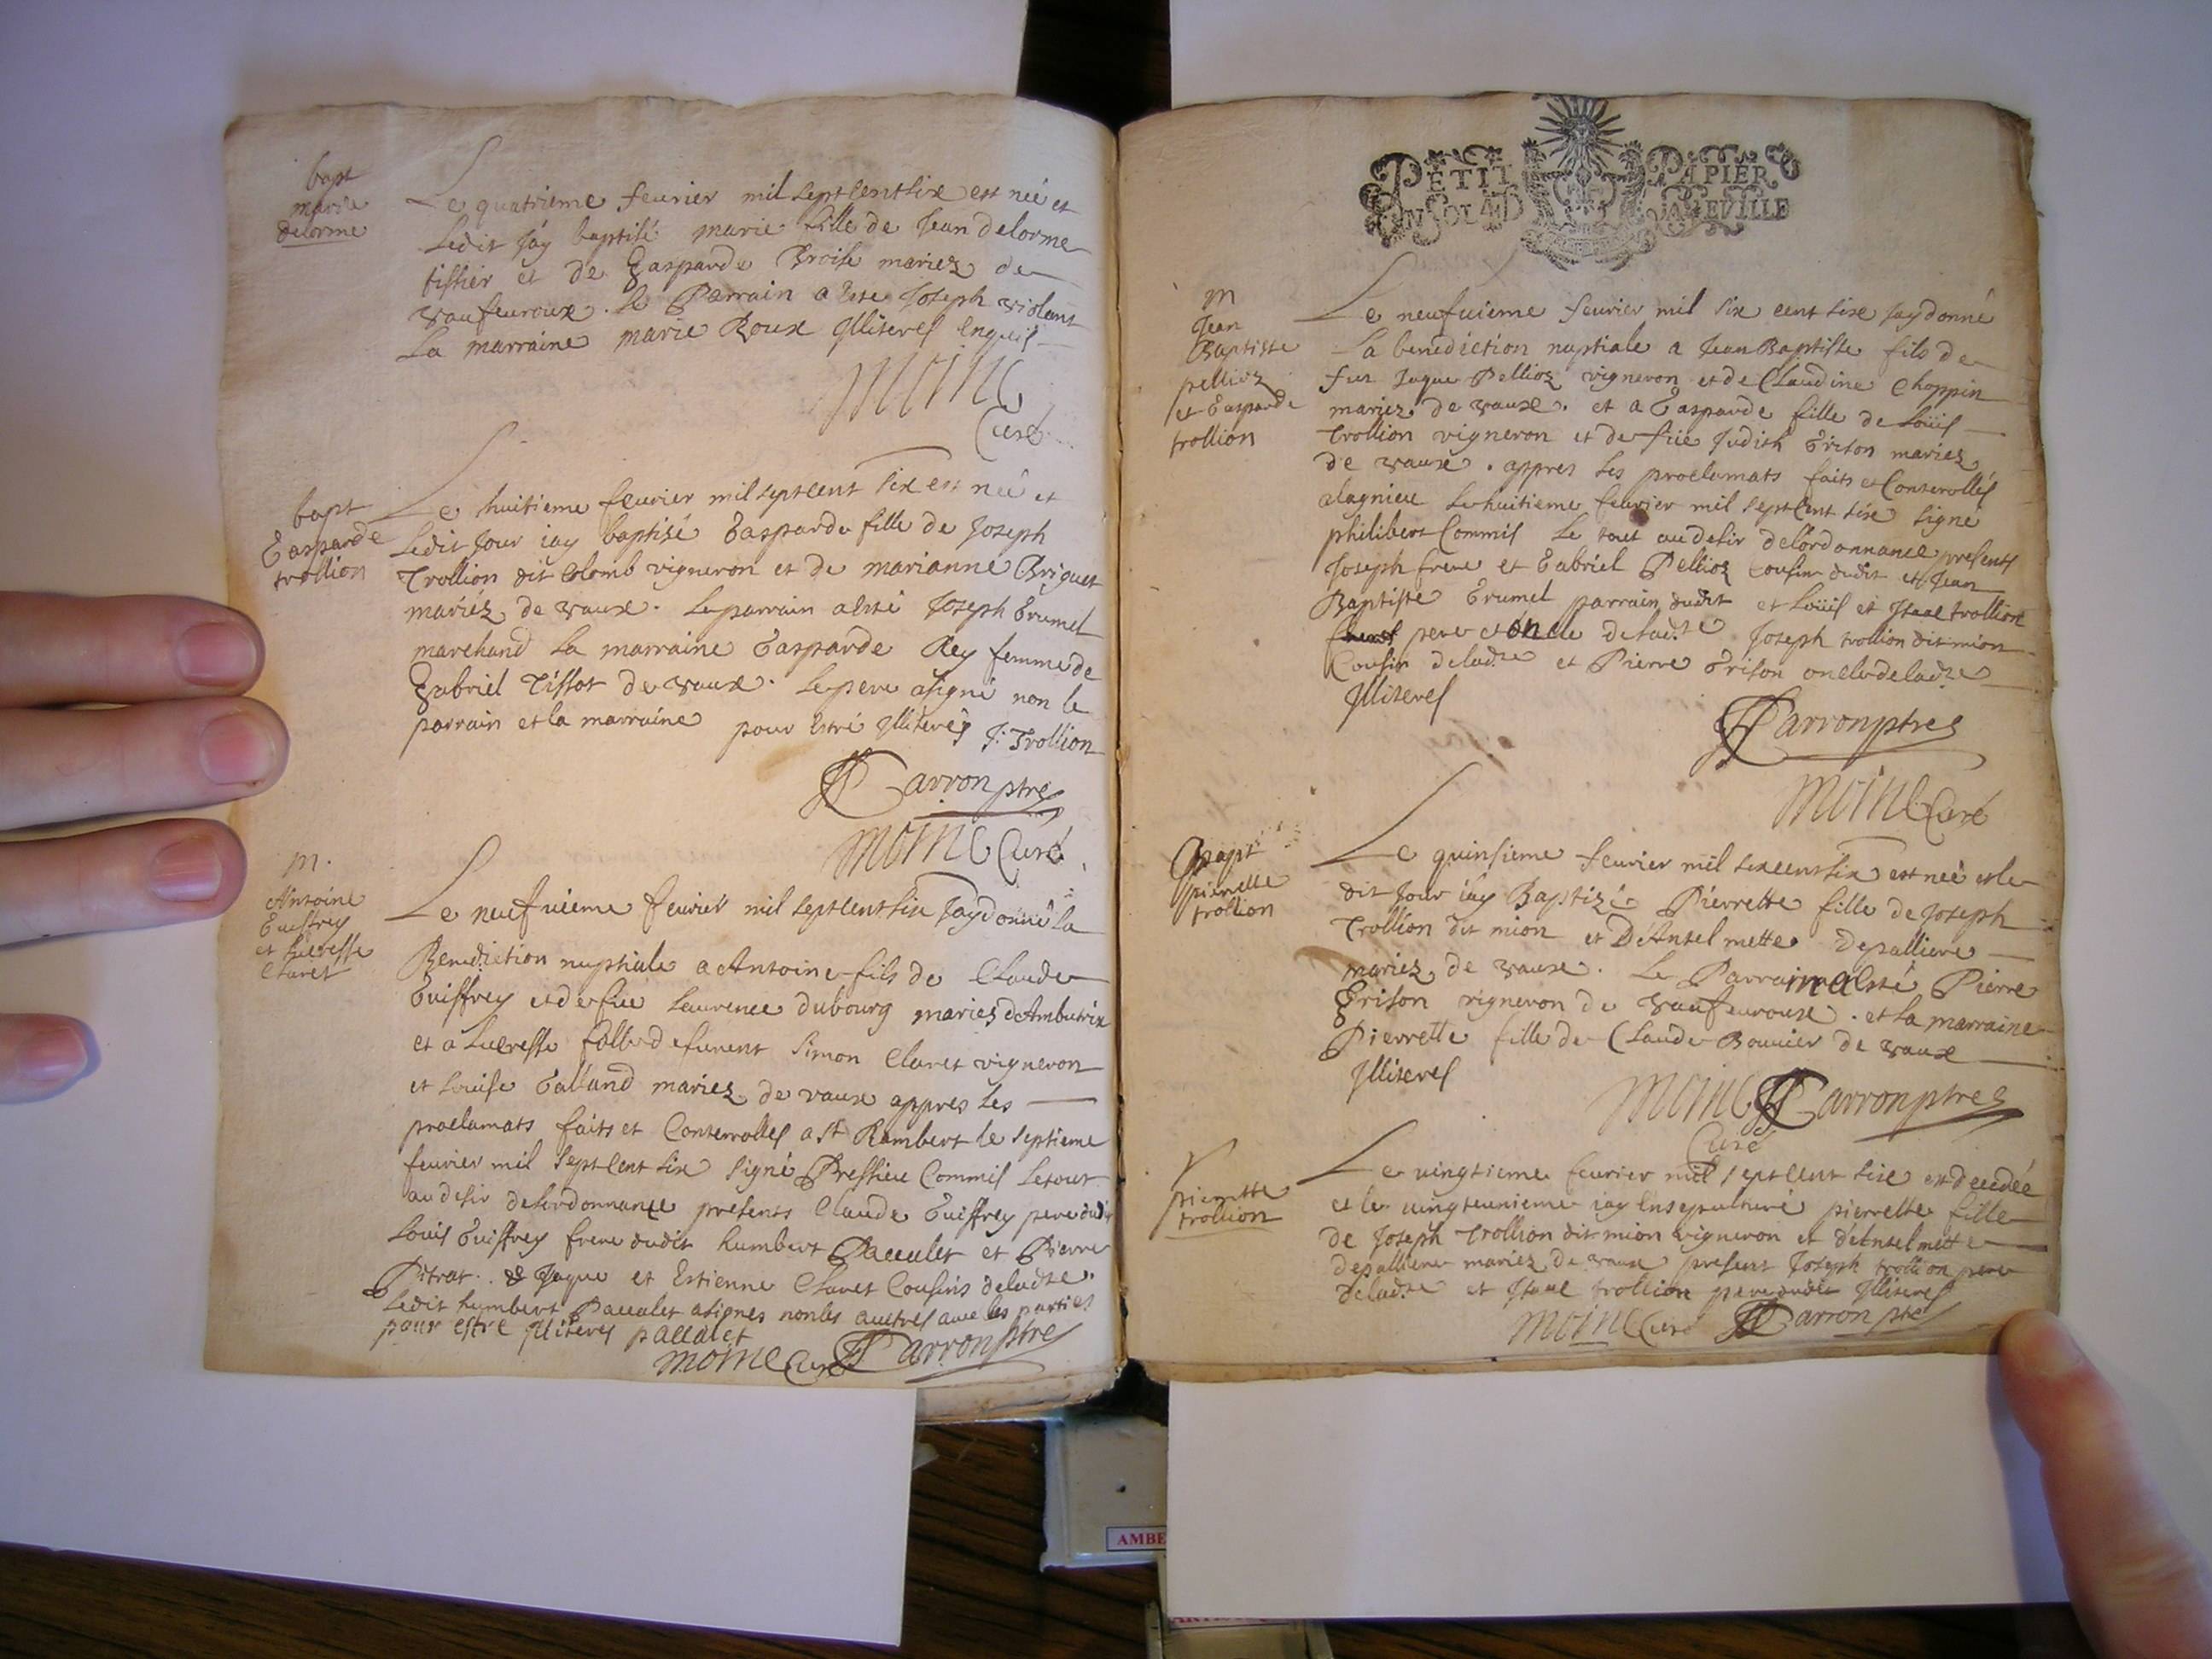 bapt
marie
delorme
Le quatrieme feurier mil sept cent six est née et
ledit jay baptisé marie fille de Jean delorme
tissier et de Gasparde Broise mariez de
vaufeuroux. le Parrain a esté Joseph violant
La marraine marie Roux Illiteres enquis
moine
Curé
bapt
Gasparde
trollion
Le huitieme feurier mil sept cent six est née et
ledit Jour iay baptisé Gasparde fille de Joseph
Trollion dit Colomb vigneron et de marianne Briguet
mariéz de vaux. le parrain a esté Joseph Grumel
marchand la marraine Gasparde Rey femme de
Gabriel Tissot de vaux. le pere a signé non le
parrain et la marraine pour estre Illiterés J: Trollion
Carron ptre
moine Curé
m.
Antoine
Guiffrey
et lucresse
Claret
Le neufuieme feurier mil sept cent six Jay donné la
Benediction nuptiale a Antoine fils de Claude
Guiffrey et de fue Laurence dubourg mariés d'Ambutrix
et a Lucresse fille de furent Simon Claret vigneron
et Louise Galland mariez de vaux appres les
proclamats faits et Conterrolles a St Rambert le septieme
feurier mil sept cent six signé Bressieu Commis le tout
au desir de lordonnance presents Claude Guiffrey pere dudit
Louis Guiffrey frere dudit humbert Paccalet et Pierre
Pitrat. & Jaque et Estienne Claret Cousins deladte.
Ledit humbert Paccalet a signes non les auttres auec les parties
pour estre Illiteres paccalet
moine Curé Carron ptre
PETIT PAPIER
UN SOL 4 D LA FEUILLE
m
Jean
Baptiste
pellioz
et Gasparde
trollion
Le neufuieme feurier mil six cent six Jay donné
La benediction nuptiale a Jean Baptiste fils de
fut Jaque Pellioz vigneron et de Claudine Choppin
mariez de vaux. et a Gasparde fille de Loüis
Trollion vigneron et de füe Judith Grison mariez
de vaux. appres les proclamats faits et Conterollés
alagnieu le huitieme feurier mil sept cent six signé
philibert Commis le tout au desir de lordonnance presents
Joseph frere et Gabriel Pellioz Cousin dudit et Jean
Baptiste Grumel parrain dudit et Loüis et Isaac trollion
pere et oncle deladte Joseph trollion dit mion
Cousin deladte et Pierre Grison oncle deladte
Illiteres
Carron ptre
moine Curé
Bapt
pierrette
trollion
Le quinsieme feurier mil six cent six est née et le
dit Jour iay Baptizé Pierrette fille de Joseph
Trollion dit mion et D'Antelmette Depalliere
mariez de vaux. Le Parrain a esté Pierre
Grison vigneron de vaufeuroux. et la marraine
Pierrette fille de Claude Bouuier de vaux
Illiteres
moine Carron ptre
Curé
pierrette
trollion
Le vingtieme feurier mil sept cent six est decedée
et le vingt eunieme iay Ensepulturé pierrette fille
de Joseph Trollion dit mion vigneron et d'Antelmette
depalliere mariez de vaux present Joseph trollion pere
deladte et Isaac trollion pere dudit Illiteres
moine Curé Carron ptre
AMBE